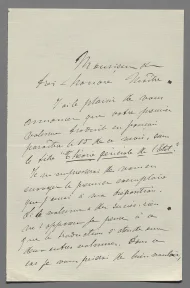 Monsieur et
très honoré Maître
J'ai le plaisir de vous
annoncer que votre premier
volume traduit en français
paraîtra le 15 de ce mois, sous
le titre Théorie générale de l'État.
Je m'empresserai de vous en
envoyer le premier exemplaire
que j'aurai à ma disposition.
Si le volume a du succès, comme
je pense à ce
que la traduction s'étende aux
deux autres volumes. Dans ce
cas je vous prierai de bien vouloir